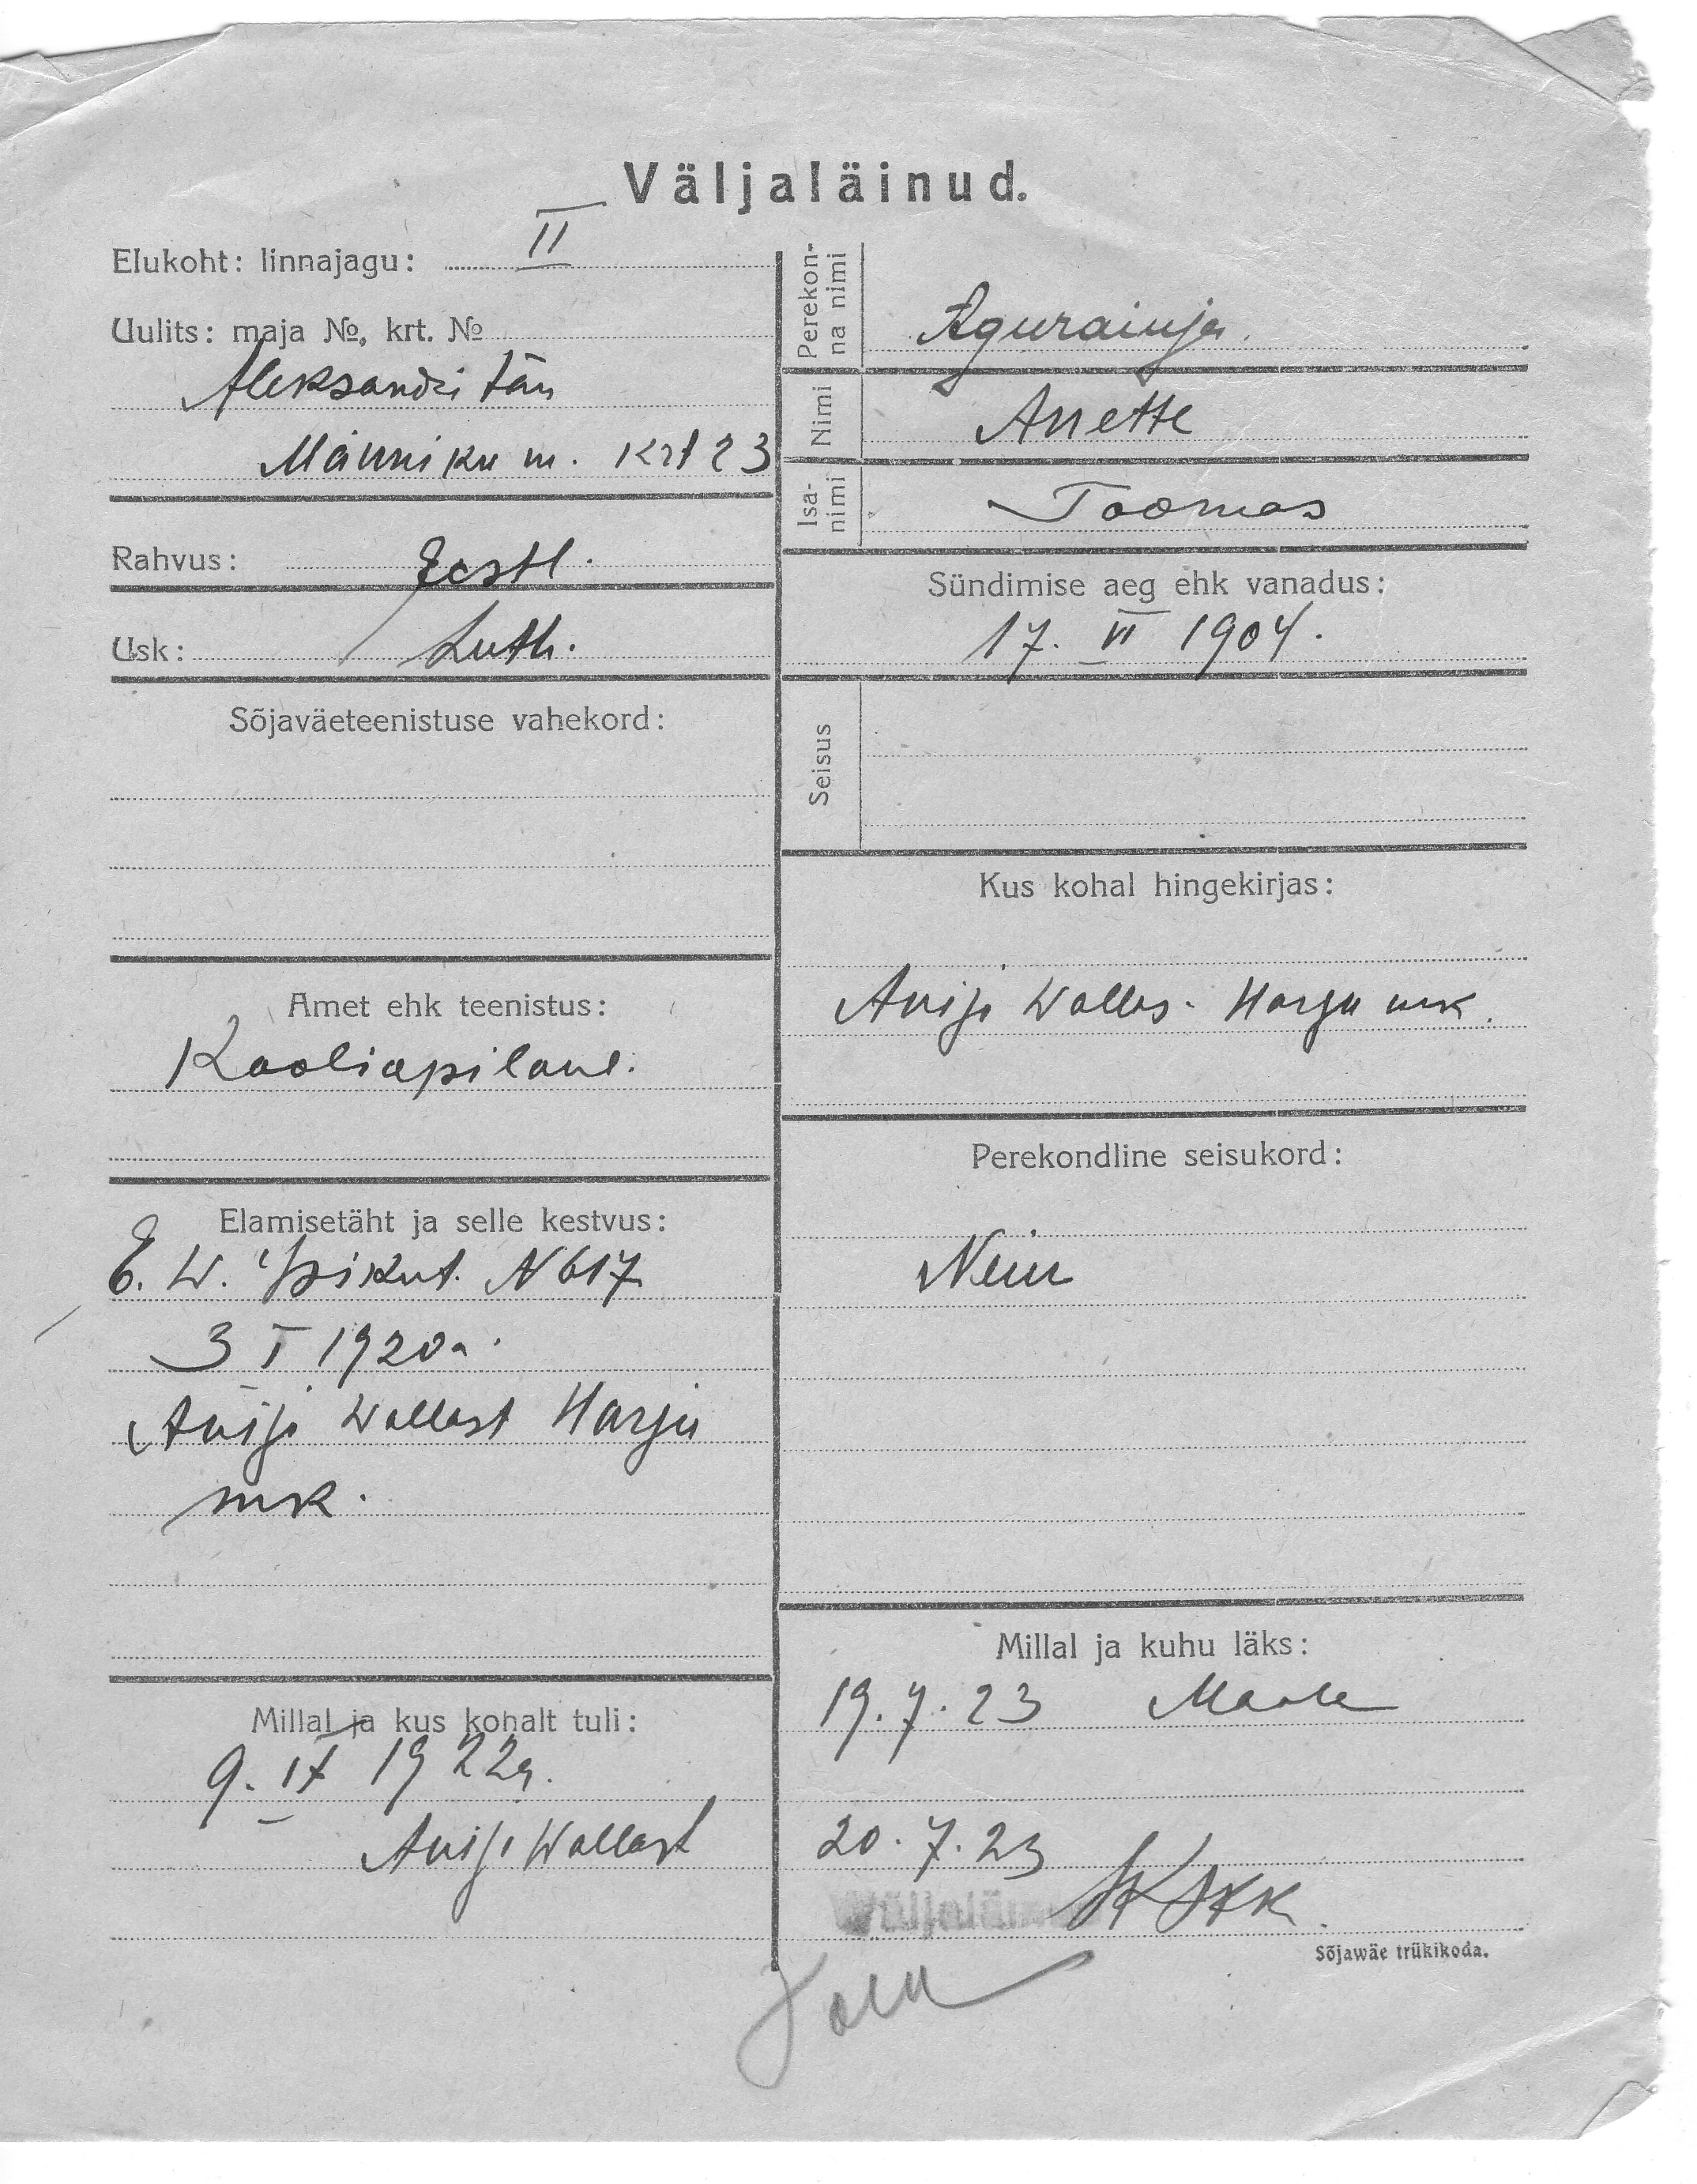 Väljaläinud.
Elukoht: linnajagu: II
Uulits: maja №, krt. №
Aleksandri tän
Männiku m. krt 23
Rahvus: Eestl.
Usk: Luth.
Sõjaväeteenistuse vahekord:
Amet ehk teenistus:
Kooliõpilane.
Elamisetäht ja selle kestvus:
E. W. Isikut. N 617
3 I 1920 a.
Anija Wallast Harju
mk.
Millal ja kus kohalt tuli:
9. IX 1922 a.
Anija Wallast
Perekonna-
na nimi
Nimi
Anette
Isa-
nimi
Toomas
Sündimise aeg ehk vanadus:
17. VI 1904.
Seisus
Kus kohal hingekirjas:
Anija Wallas. Harju mk.
Perekondline seisukord:
Neiu
Millal ja kuhu läks:
19.7.23 Maale
20.7.23
Wäljaläinud
Sõjawäe trükikoda.